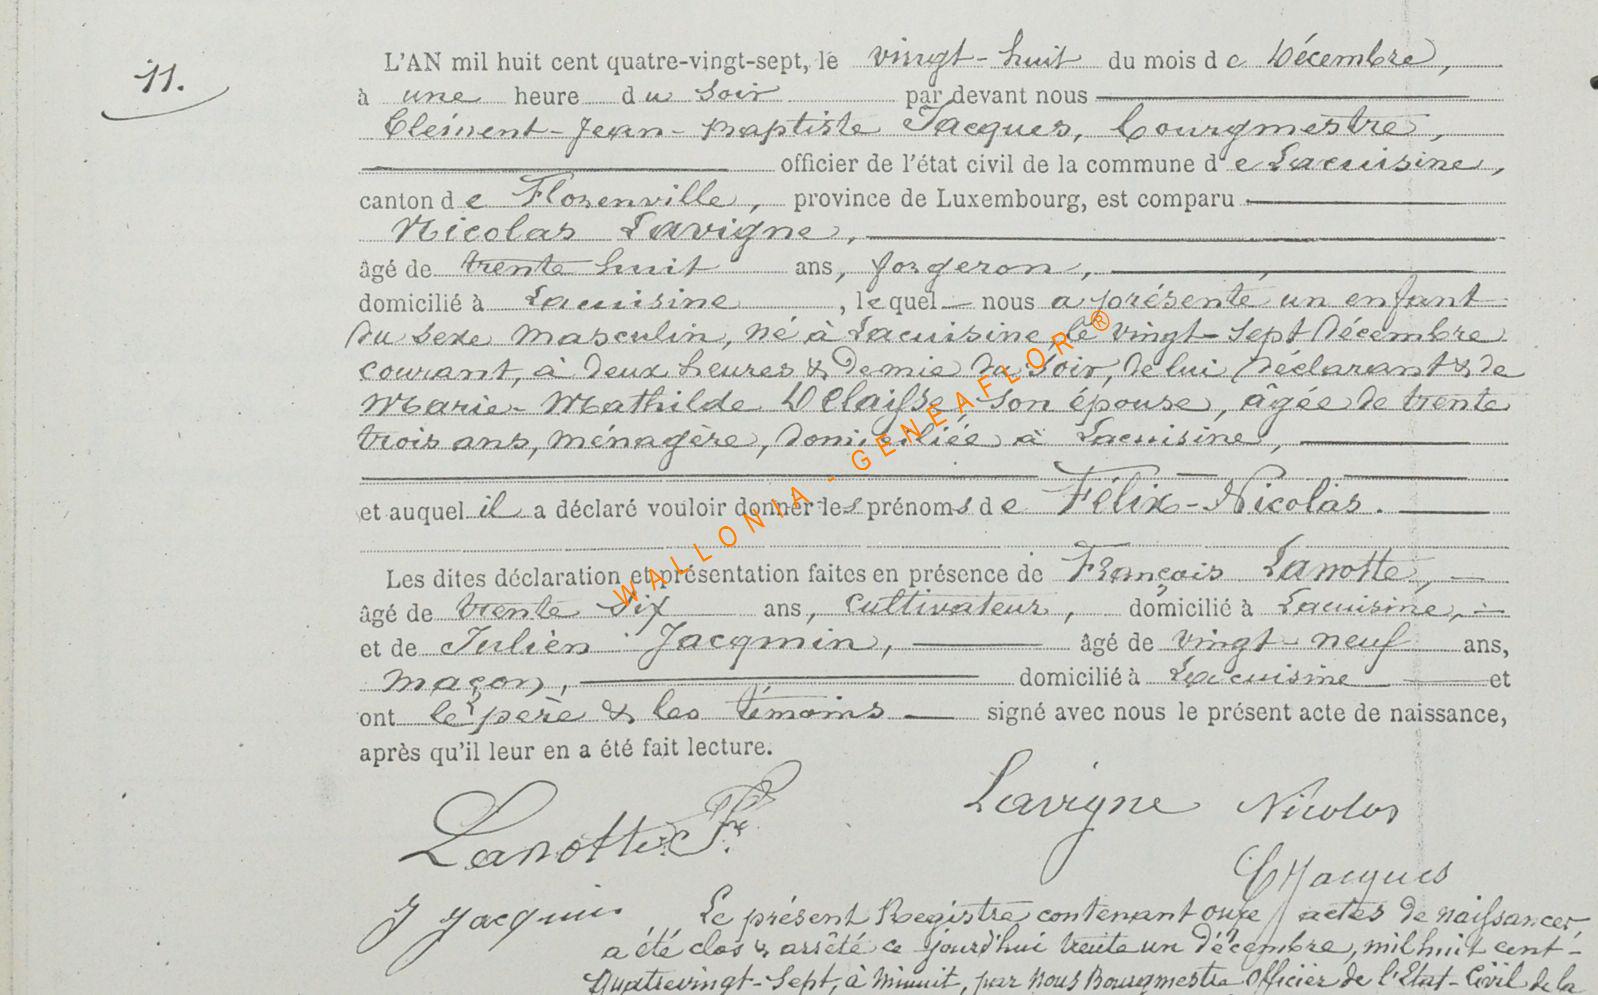 11.
L'AN mil huit cent quatre-vingt-sept, le vingt-huit du mois de Décembre,
à une heure du soir par devant nous
Clément-Jean-Baptiste Jacques, bourgmestre,
officier de l'état civil de la commune de Lacuisine,
canton de Florenville, province de Luxembourg, est comparu
Nicolas Lavigne,
âgé de trente huit ans, forgeron,
domicilié à Lacuisine, lequel nous a présenté un enfant
du sexe masculin, né à Lacuisine, le vingt-sept Décembre
courant, à deux heures & demie du soir, de lui déclarant & de
Marie-Mathilde Delaisse, son épouse, âgée de trente
trois ans, ménagère, domiciliée à Lacuisine,
et auquel il a déclaré vouloir donner les prénoms de Félix-Nicolas.
Les dites déclaration et présentation faites en présence de François Lanotte,
âgé de trente six ans, cultivateur, domicilié à Lacuisine,
et de Julien Jacqmin, âgé de vingt-neuf ans,
maçon, domicilié à Lacuisine et
ont le père & les témoins signé avec nous le présent acte de naissance,
après qu'il leur en a été fait lecture.
Lavigne Nicolas
Lanotte F.
CJJacques
J Jacqmin
Le présent Registre contenant onze actes de naissances
a été clos & arrêté ce jourd'hui trente un décembre, mil huit cent-
Quatrevingt-Sept, à minuit, par nous Bourgmestre Officier de l'Etat-Civil de la
WALLONIA - GENEAFLOR ®